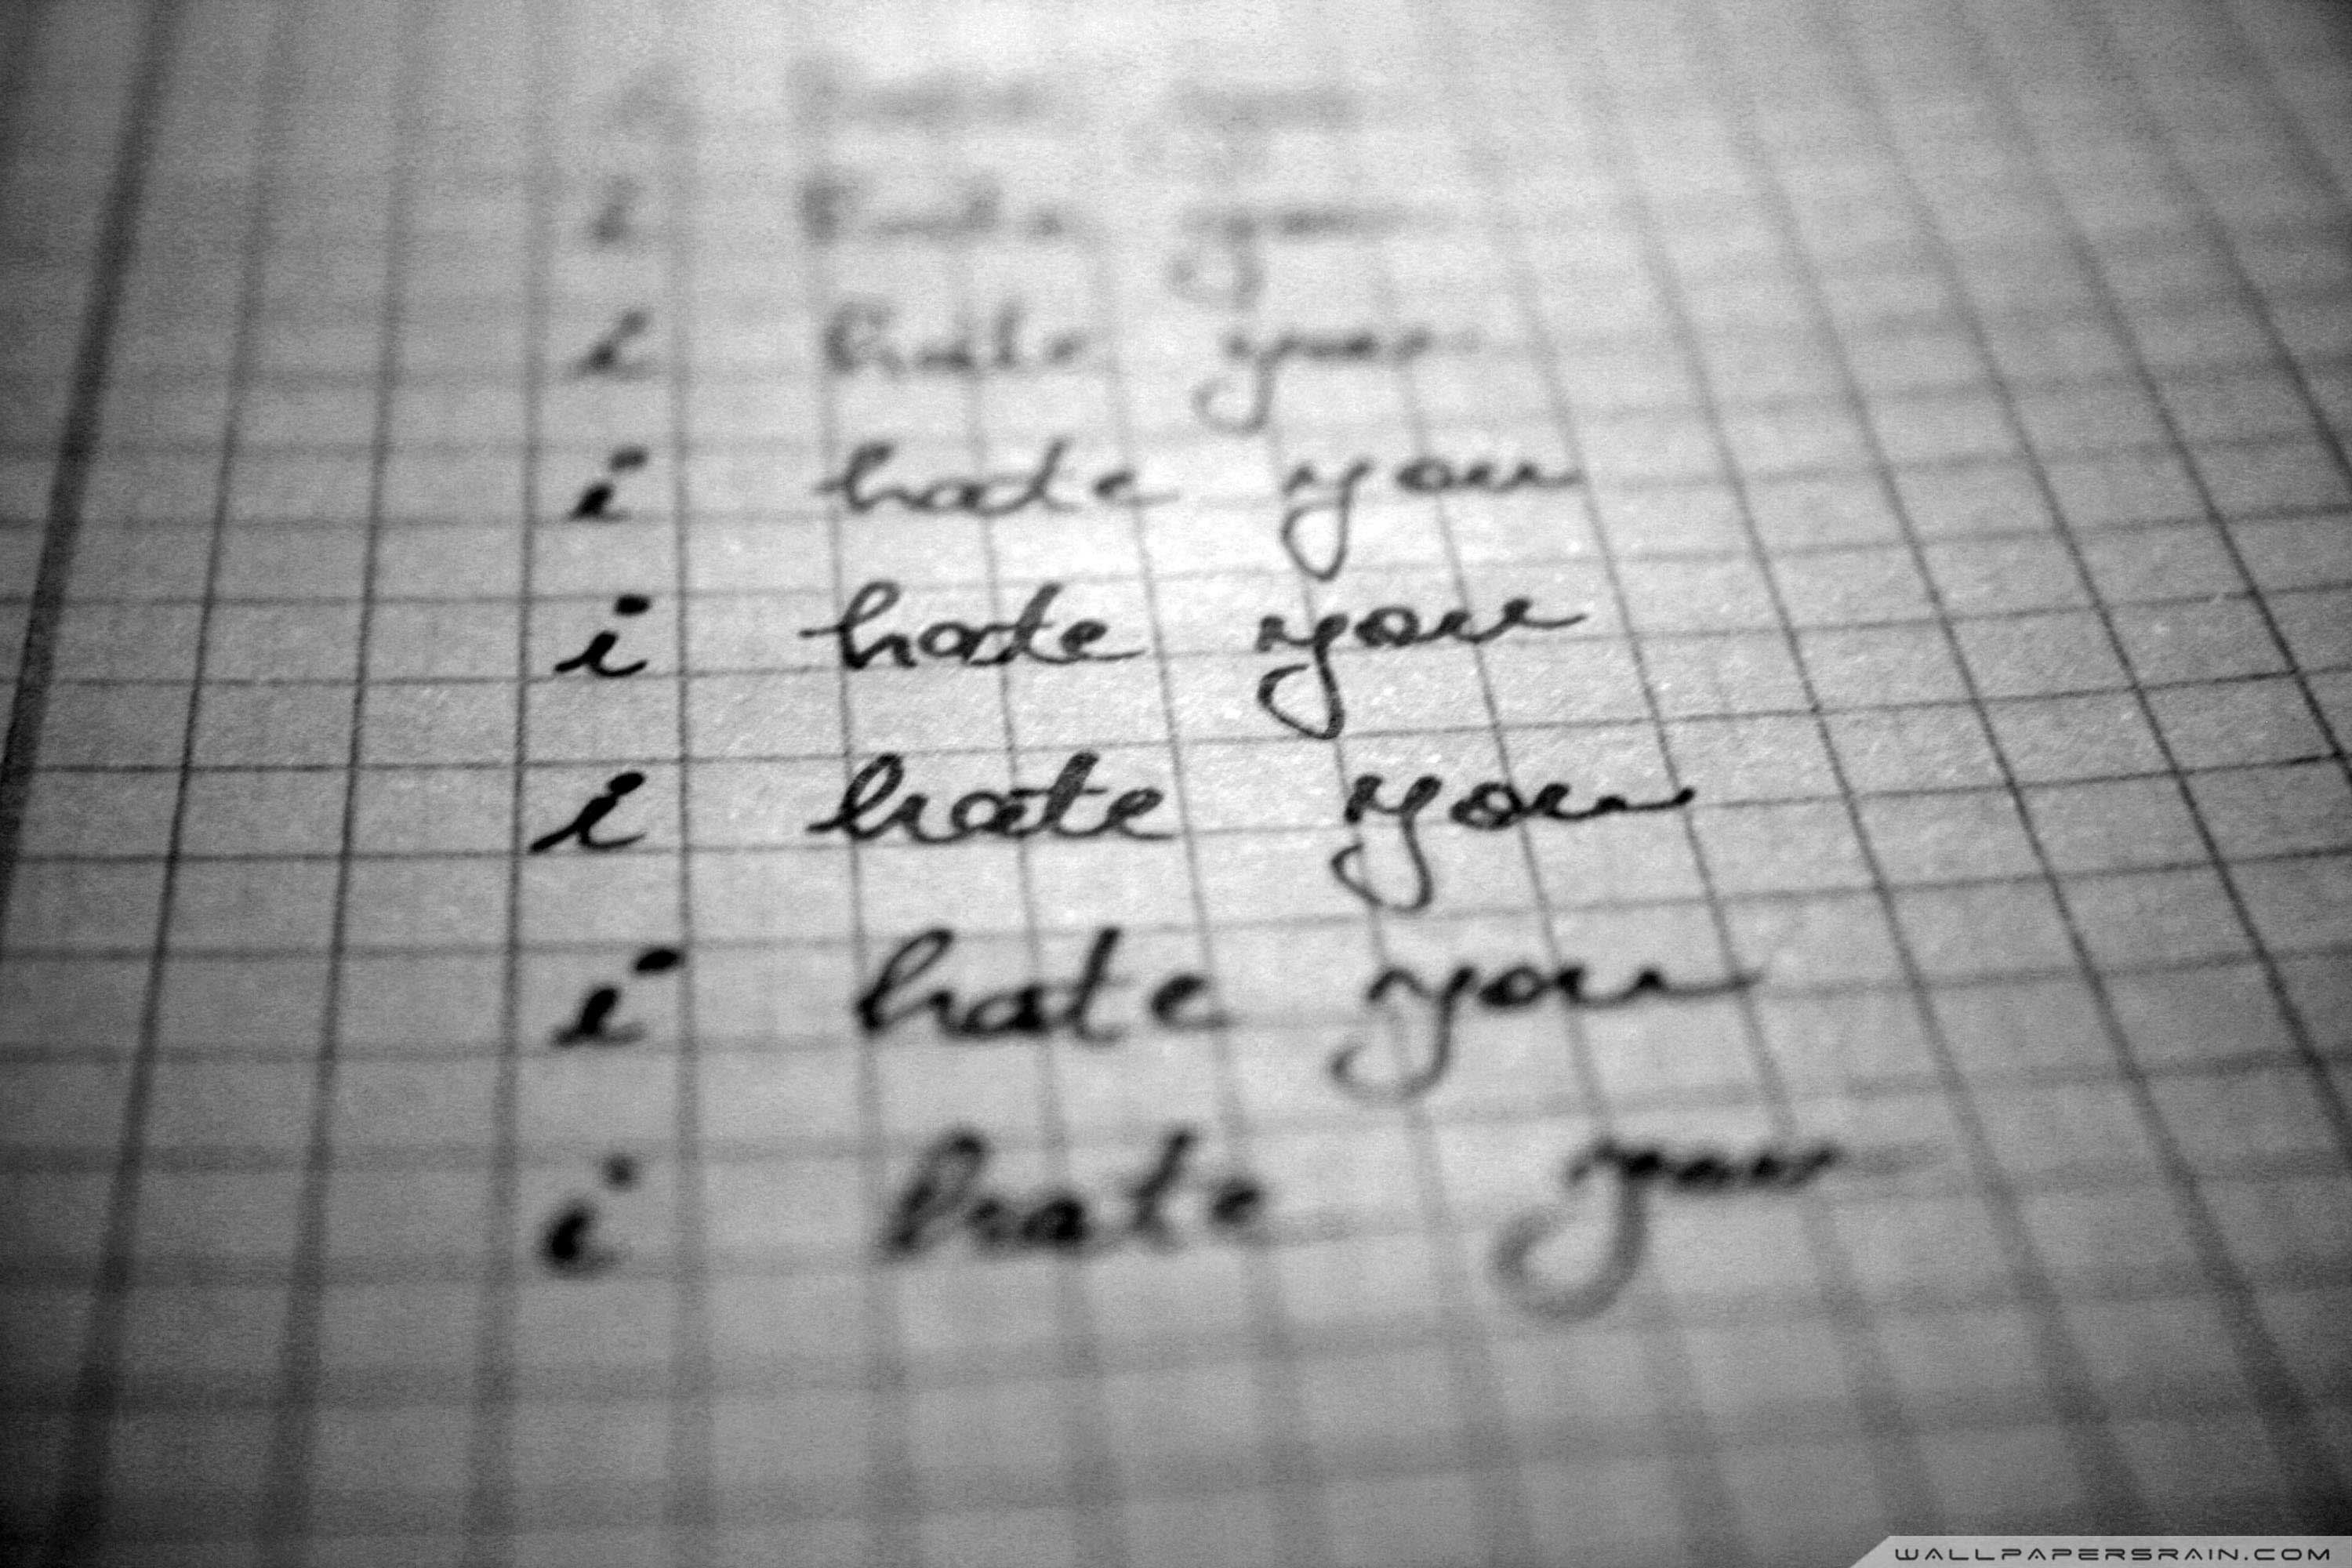 i hate you
i hate you
i hate you
i hate you
i hate you
i hate you
i hate you
WALLPAPERSRAIN.COM